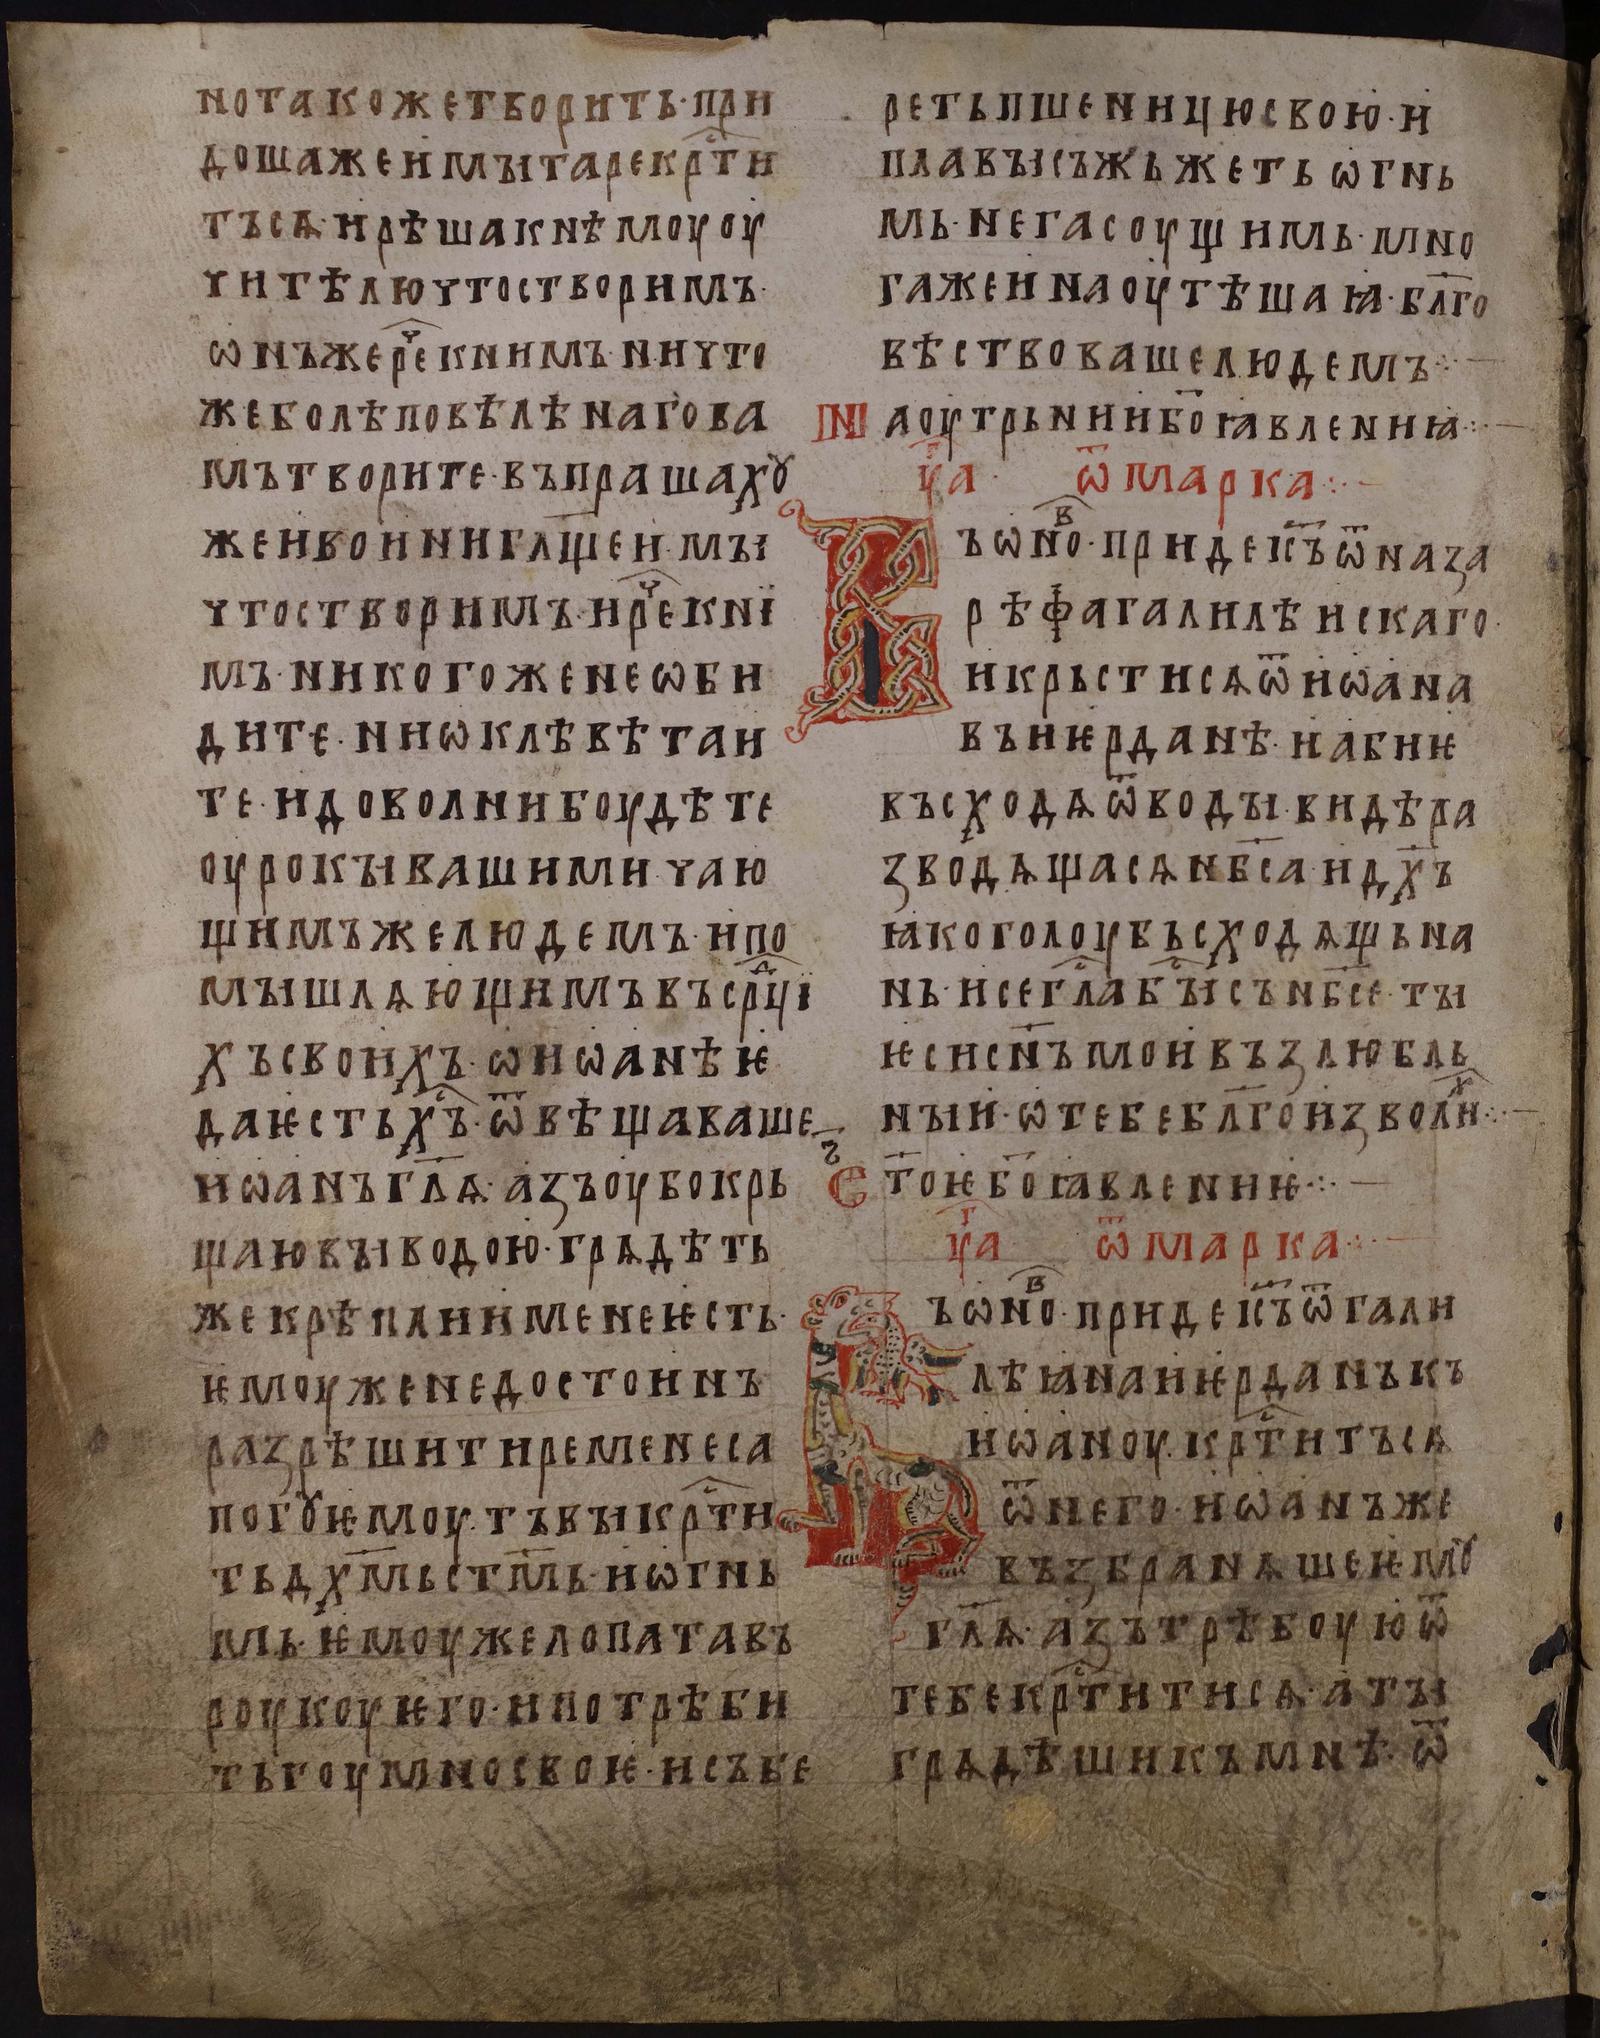 нотакожетворить·при
дошажеимытарекрⷭ҇ти
тьсѧ·ирѣшакнѣмоуоу
чителючтостворимъ·
ѡнъжерⷱ҇екнимъ·ничто
жеболѣповѣлѣнагова
мътворите·въпрашахꙋ
жеивоинигл҃щеи·мы
чтостворимъ·ирⷱ҇екнї
мъ·никогоженеѡби
дите·ниѡклѣвѣтаи
те·идоволнибоудѣте
оурокывашими·чаю
щимъжелюдемъ·ипо
мышлѧющимъвъсрⷣцї
хъсвоихъ·ѡиѡанѣѥ
даѥстьхⷭ҇ъ·ѿвѣщаваше
иѡанъгл҃ѧ·азъоубокрь
щаювыводою·грѧдѣть
жекрѣплиименеѥсть·
ѥмоуженедостоинъ
разрѣшитиременеса
погꙋѥмоу·тъвыкрⷭ҇ти
тьдх҃мьст҃мь·иѡгнь
мь·ѥмоужелопатавъ
роукоуѥго·ипотрѣби
тьгоумносвоѥ·исъбе
ретьпшеницюсвою·и
плавысъжьжетьѡгнь
мь·негасоущимь·мно
гажеинаоутѣшаꙗ·бл҃го
вѣствовашелюдемъ⁘
Наоутрьниибо҃ꙗвлениꙗ⁘
єⷢ҇а ѿмарка⁘
Въѡноⷡ·придеіс҃ъѿназа
рѣфагалилѣискаго·
икрьстисѧѿиѡана
въиѥрданѣ·иабиѥ
въсходѧѿводы·видѣра
зводѧщасѧнб҃са·идх҃ъ
ꙗкоголоубьсходѧщьна
нь·исегⷭ҇лабⷭ҇ысънб҃се·ты
ѥсисн҃ъмоивъзлюбль
ныи·ѡтебебл҃гоизволиⷯ⁘
С҃тоѥбо҃ꙗвлениѥ⁘
єⷢ҇а ѿмарка⁘
Въѡноⷡ·придеіс҃ъѿгали
лѣꙗнаиѥрданъкъ
иѡаноу·крⷭ҇титъсѧ
ѿнего·иѡанъже
възбранѧшеѥмꙋ
гл҃ѧ·азътрѣбоуюѿ
тебекрⷭ҇титисѧ·аты
грѧдѣшикъмнѣ·ѿ